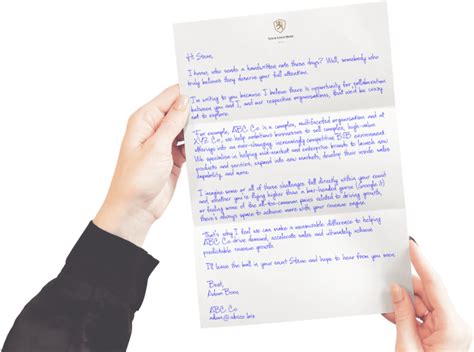 Hi Steve,
I know, who sends a handwritten note these days? Well, somebody who
truly believes they deserve your full attention.
I'm writing to you because I believe there is opportunity for collaboration
between you and I, and our respective organisations, that we'd be crazy
not to explore.
For example, ABC Co is a complex, multifaceted organisation and at
XYZ Co, we help ambitious businesses to sell complex, high-value
offerings into an ever-changing, increasingly competitive B2B environment.
We specialise in helping mid-market and enterprise brands to launch new
products and services, expand into new markets, develop their inside sales
capability, and more.
I imagine some or all of these challenges fall directly within your court
and whether you're flying higher than a bar-headed goose (Google it)
or feeling some of the all-too-common pains related to driving growth,
there's always space to achieve more with your revenue engine.
That's why I feel we can make a measurable difference to helping
ABC Co drive demand, accelerate sales and ultimately achieve
predictable revenue growth.
I'll leave the ball in your court Steve and hope to hear from you
soon.
Best,
Adam
ABC Co